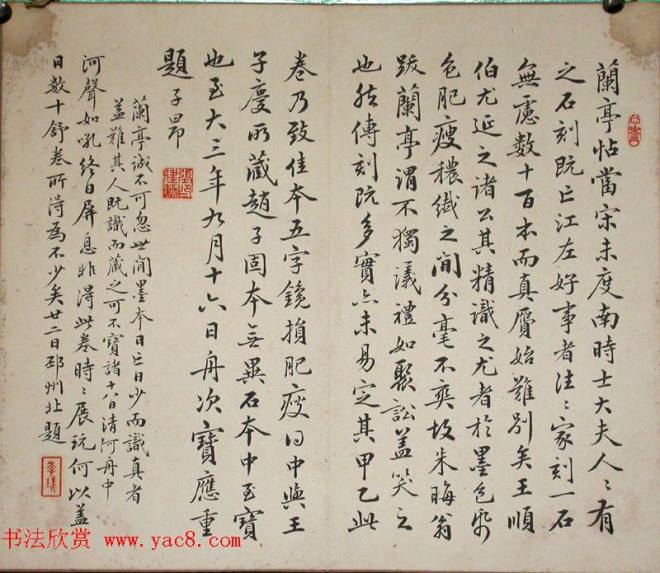 蘭亭帖當宋未度南時士大夫人〻有
之石刻既亡江左好事者往〻家刻一石
無慮數十百本而真贗始難別矣王順
伯尤延之諸公其精識之尤者於墨色紙
色肥瘦穠纖之間分毫不爽故朱晦翁
跋蘭亭謂不獨議禮如聚訟蓋笑之
也然傳刻既多實亦未易定其甲乙此
卷乃致佳本五字鑱損肥瘦得中與王
子慶所藏趙子固本無異石本中至寶
也至大三年九月十六日舟次寶應重
題子昂
蘭亭誠不可忽世間墨本日亡日少而識真者
蓋難其人既識而藏之可不寶諸十八日清河舟中
河聲如吼終日屏息非得此卷時〻展玩何以盖
日數十舒卷所得為不少矣廿二日邳州北題
书法欣赏 www.yac8.com